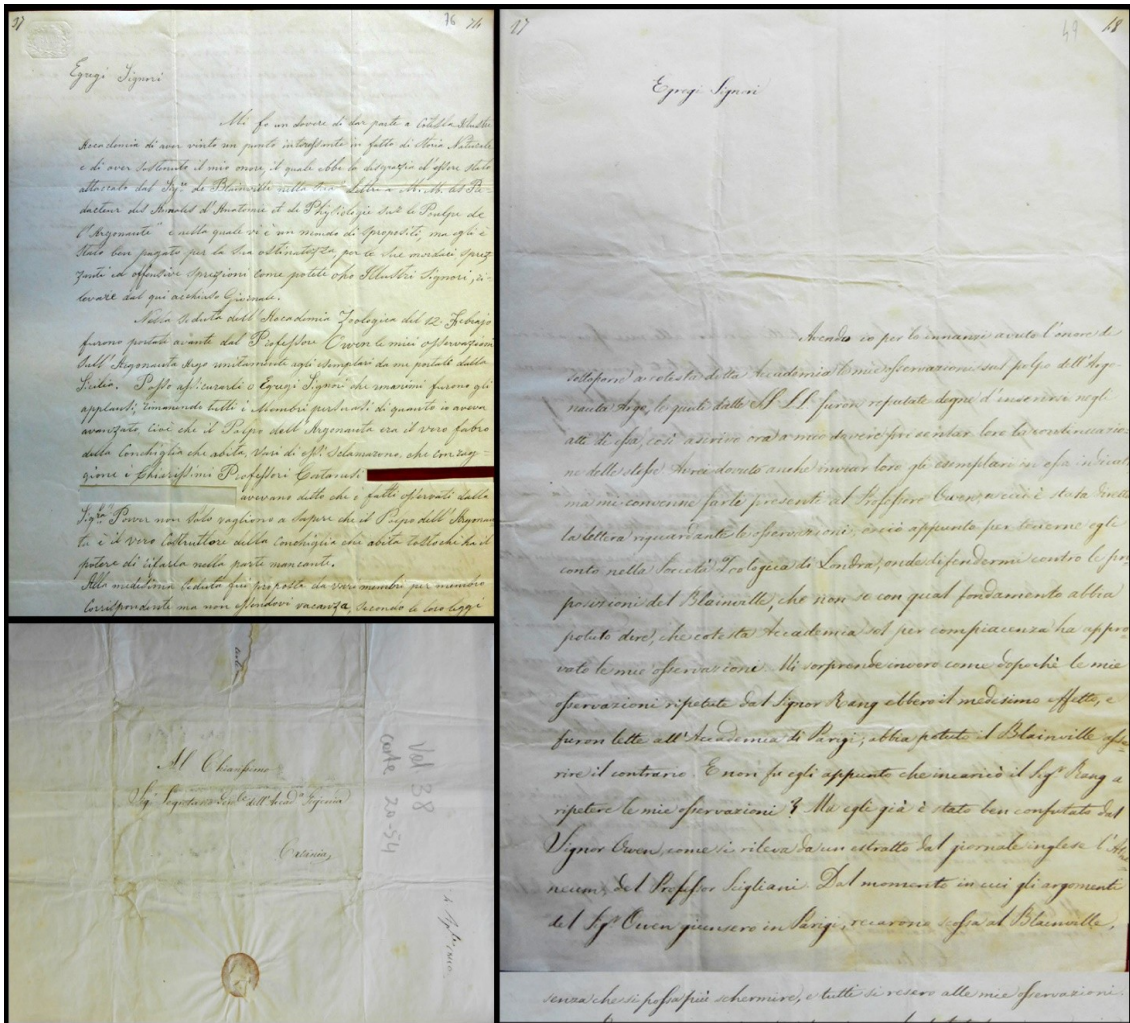 37
76 76
Egregi Signori
Mi fo un dovere di dar parte a Cotesta Illustre
Accademia di aver vinto un punto interessante in fatto di Storia Naturale
e di aver sostenuto il mio onore, il quale ebbe la disgrazia d'essere stato
attaccato dal Sigr. de Blainville nella sua Lettre a M.M. les Re-
dacteur des Annales d'Anatomie et de Physiologie sur le Poulpe de
l'Argonaute e nella quale vi è un mondo di spropositi, ma egli è
stato ben pagato per la sua ostinatezza, per le sue mordaci sprez-
zanti ed offensive spressioni come potete o Illustri Signori, ri-
levare dal qui acchiuso Giornale.
Nella seduta dell'Accademia Zoologica del 12 Febrajo
furono portate avante dal Professore Owen le mie osservazioni
sull'Argonauta Argo unitamente agli esemplari da me portate dalla
Sicilia. Posso assicurarli o Egregi Signori che unanimi furono gli
applausi, rimanendo tutti i Membri persuasi di quanto io aveva
avanzato, cioè che il Polpo dell'Argonauta era il vero fabro
della Conchiglia che abita, vari di essi sclamarono, che con rag-
gione i Chiarissimi Professori Catanesi
avevano ditto che i fatti osservati dalla
Sigra. Power non solo vagliono a sapere che il Polpo dell'Argonau
ta è il vero Costruttore della Conchiglia che abita tostochè ha il
potere di rifarla nella parte mancante.
Alla medesima seduta fui proposta da vari membri per membro
Corrispondente ma non essendovi vacanza, secondo le loro leggi
Al Chiarissimo
Sigr. Segretario Genle. dell'Accada. Gioenia
Catania
Vol 38
carte 20-54
37
49 48
Egregi Signori
Avendo io per lo innanzi avuto l'onore di
sottoporre a cotesta detta Accademia le mie osservazioni sul polpo dell'Argo-
nauta Argo, le quali dalle SS. LL. furon reputate degne d'inserirsi negli
atti di essa, così ascrivo ora a mio dovere presentar loro la continuazio-
ne delle stesse. Avrei dovuto anche inviar loro gli esemplari in essa indicati
ma mi convenne farle presenti al Professore Owen a cui è stata diretta
la lettera riguardante le osservazioni, acciò appunto per tenerne egli
conto nella Società Zoologica di Londra, onde difendermi contro le pro-
posizioni del Blainville, che non so con qual fondamento abbia
potuto dire, che cotesta Accademia sol per compiacenza ha appro-
vato le mie osservazioni. Mi sorprende invero come dopochè le mie
osservazioni ripetute dal Signor Rang ebbero il medesimo effetto, e
furon lette all'Accademia di Parigi, abbia potuto il Blainville asse-
rire il contrario. E non fu egli appunto che incaricò il Sigr. Rang a
ripetere le mie osservazioni? Ma egli già è stato ben confutato dal
Signor Owen, come si rileva da un estratto dal giornale inglese l'Ate-
neum, del Professor Scigliani. Dal momento in cui gli argomenti
del Sigr. Owen giunsero in Parigi, recarono scossa al Blainville,
senza che si possa più schermire, e tutti si resero alle mie osservazioni.